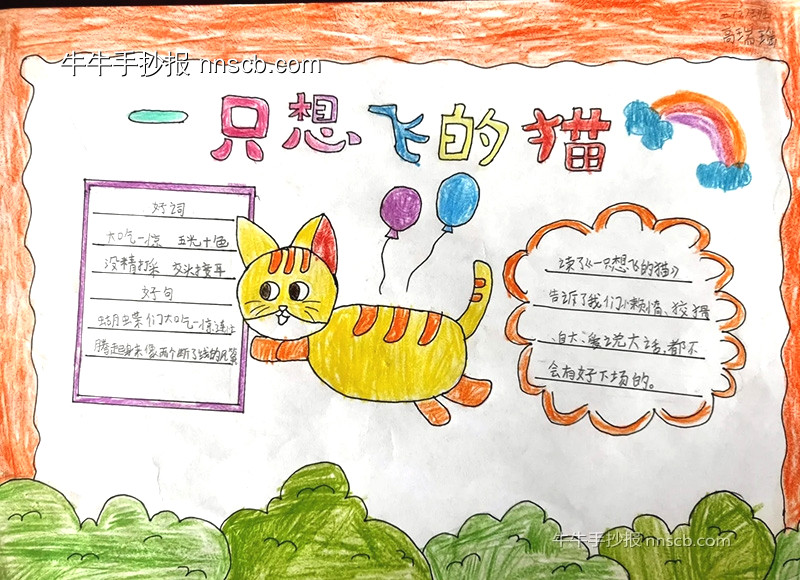 高瑞瑶
牛牛手抄报 nnscb.com
一只想飞的猫
好词
大吃一惊 五光十色
没精打采 交头接耳
好句
蝴蝶们大吃一惊连忙
腾起身来像两个断了线的风筝
读了《一只想飞的猫》
告诉了我们懒惰、狡猾
、自大、爱说大话,都不
会有好下场的。
牛牛手抄报 nnscb.com